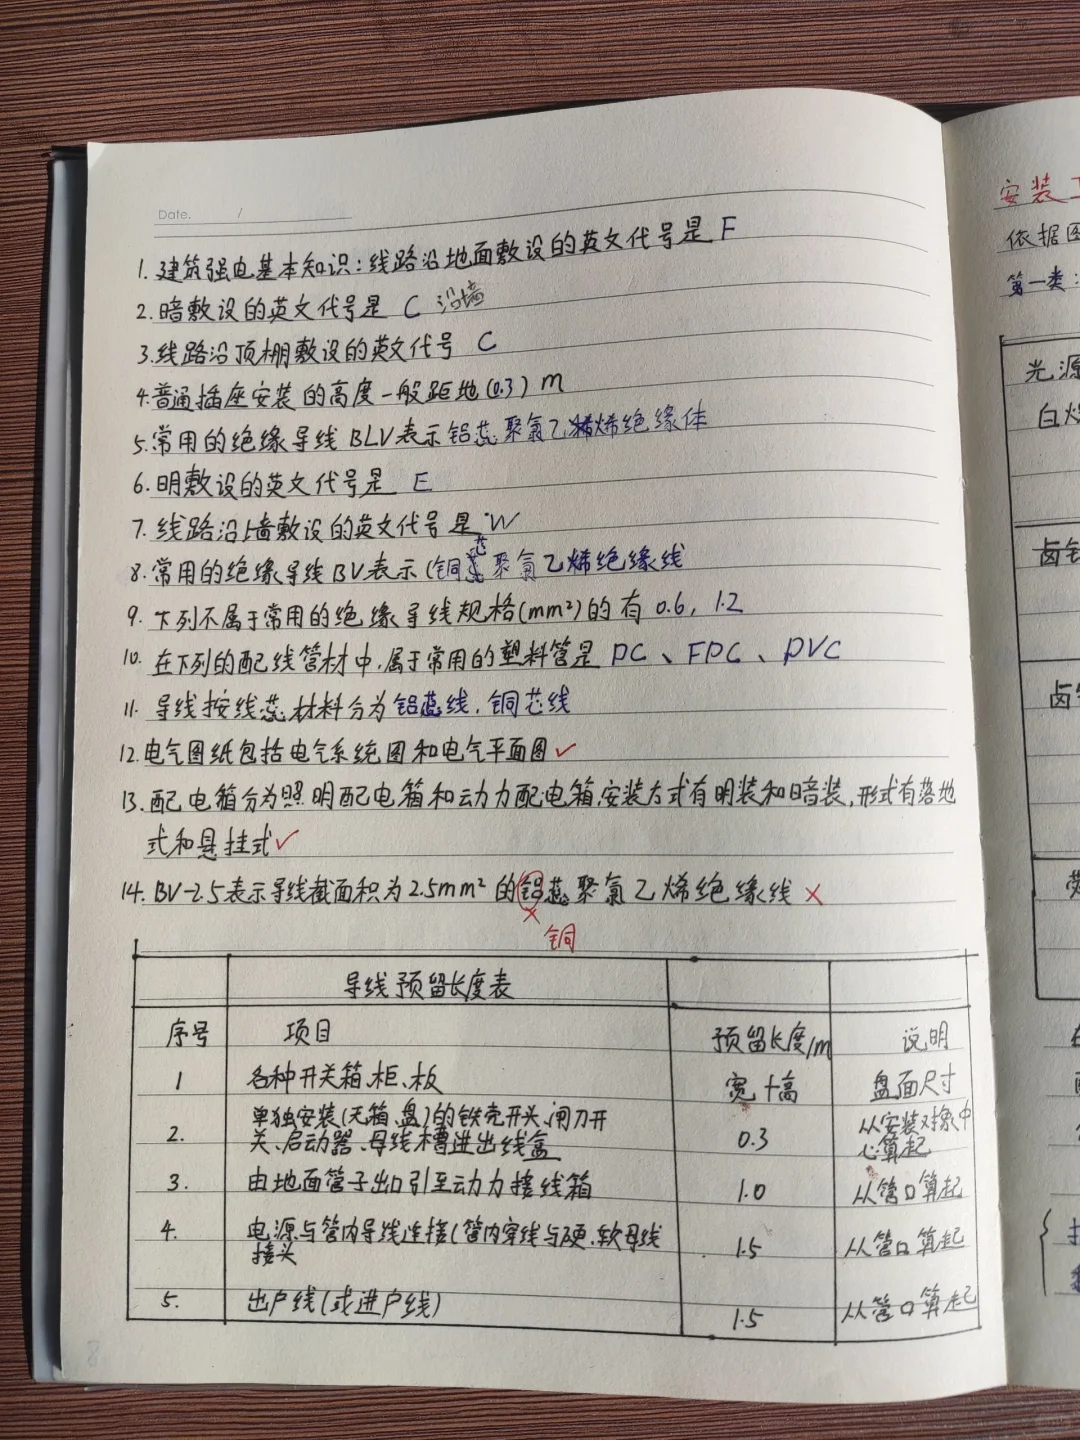 Date. /
1. 建筑强电基本知识：线路沿地面敷设的英文代号是 F
2. 暗敷设的英文代号是 C 沿墙
3. 线路沿顶棚敷设的英文代号 C
4. 普通插座安装的高度一般距地(0.3) m
5. 常用的绝缘导线 BLV表示铝芯聚氯乙烯绝缘体
6. 明敷设的英文代号是 E
7. 线路沿墙敷设的英文代号是 W
8. 常用的绝缘导线BV表示(铜芯聚氯乙烯绝缘线
9. 下列不属于常用的绝缘导线规格(mm²)的有 0.6, 1.2
10. 在下列的配线管材中,属于常用的塑料管是 PC、FPC、PVC
11. 导线按线芯材料分为铝芯线，铜芯线
12. 电气图纸包括电气系统图和电气平面图✓
13. 配电箱分为照明配电箱和动力配电箱,安装方式有明装和暗装,形式有落地
式和悬挂式✓
14. BV-2.5表示导线截面积为2.5mm²的铝芯聚氯乙烯绝缘线 ×
× 铜
导线预留长度表
序号 项目 预留长度/m 说明
1 各种开关箱、柜、板 宽+高 盘面尺寸
2. 单独安装(无箱、盘)的铁壳开关、闸刀开 0.3 从安装对象中
关、启动器、母线槽进出线盒 心算起
3. 由地面管子出口引至动力接线箱 1.0 从管口算起
4. 电源与管内导线连接(管内穿线与硬、软母线 1.5 从管口算起
接头
5. 出户线(或进户线) 1.5 从管口算起
8
安装
依据
第一类:
光源
白
卤
卤